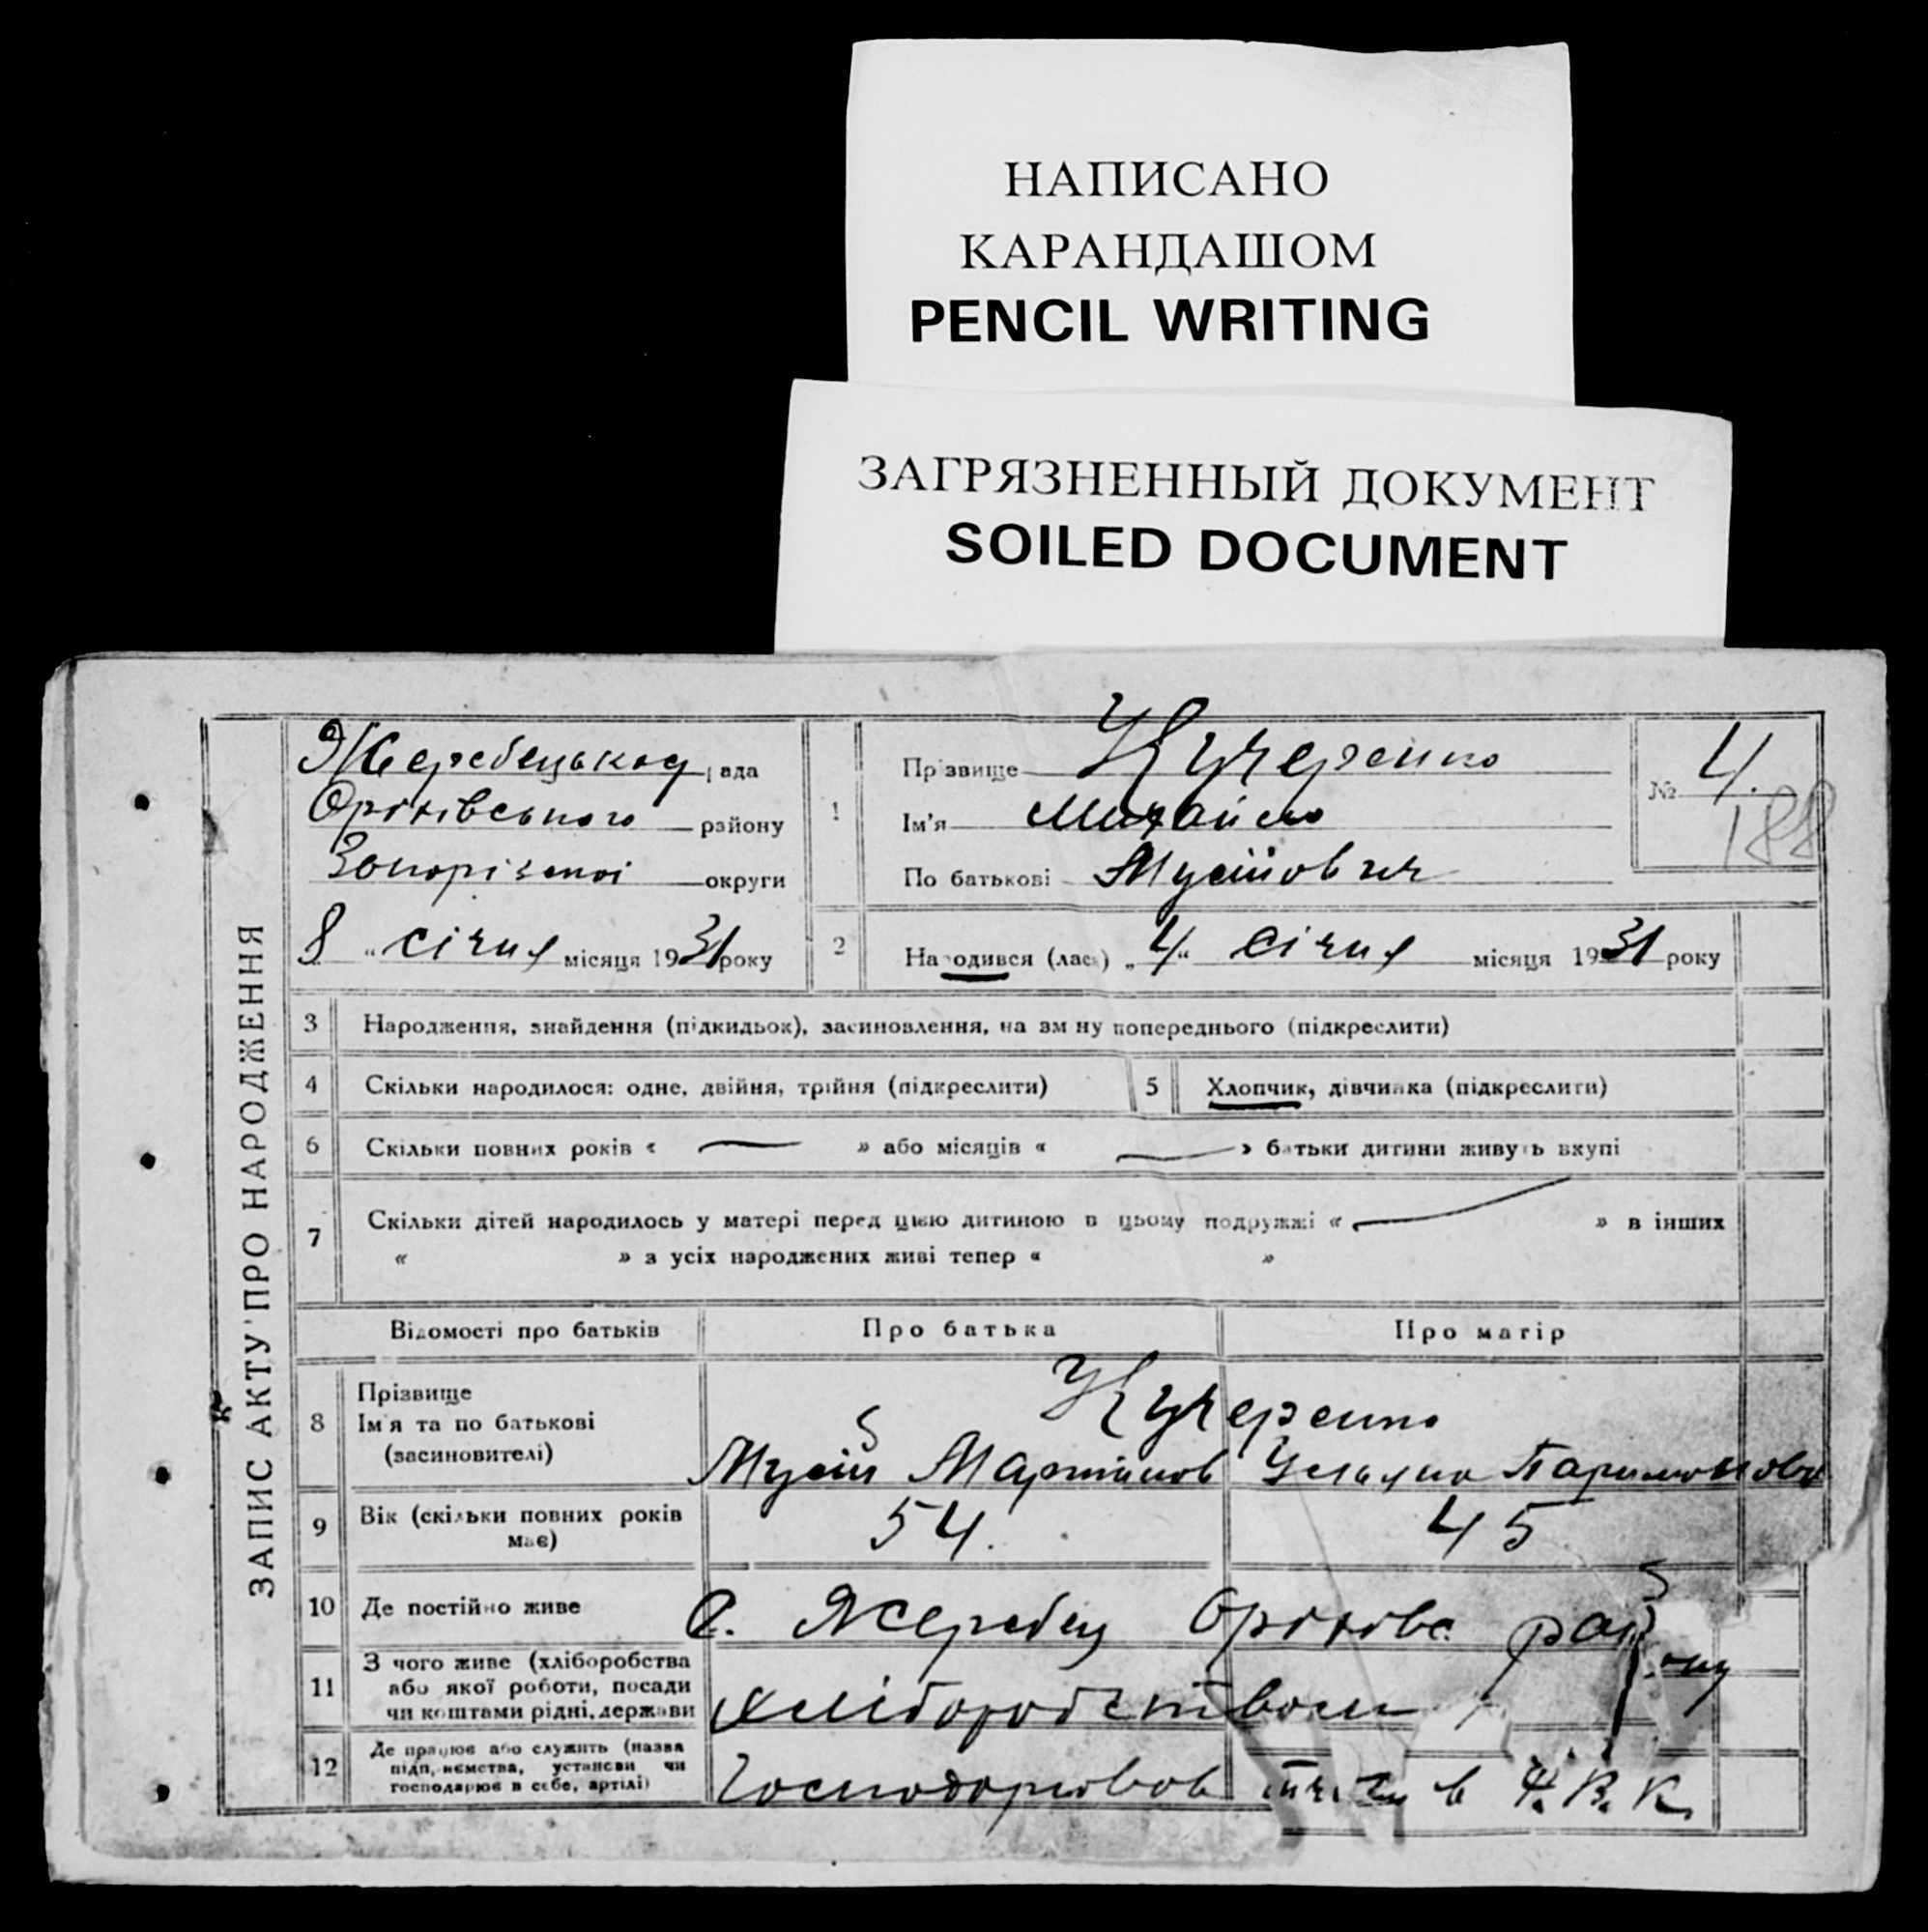 НАПИСАНО
КАРАНДАШОМ
PENCIL WRITING
ЗАГРЯЗНЕННЫЙ ДОКУМЕНТ
SOILED DOCUMENT
ЗАПИС АКТУ ПРО НАРОДЖЕННЯ
Жеребецької рада
Оріхівського району
Запорізької округи
8 " січня місяця 1931 року
1
Прізвище Кучеренко
Ім'я Михайло
По батькові Мусійович
№ 4.
188
2
Народився (лась) „ 4 “ січня місяця 1931 року
3 Народження, знайдення (підкидьок), засиновлення, на зміну попереднього (підкреслити)
4 Скільки народилося: одне, двійня, трійня (підкреслити)
5 Хлопчик, дівчинка (підкреслити)
6 Скільки повних років « — » або місяців « — » батьки дитини живуть вкупі
7 Скільки дітей народилось у матері перед цією дитиною в цьому подружжі « — » в інших
« » з усіх народжених живі тепер « »
Відомості про батьків Про батька Про матір
8 Прізвище
Ім'я та по батькові
(засиновителі)
Кучеренко
Мусій Мартинов Уляна Парамонова
9 Вік (скільки повних років
має)
54. 45
10 Де постійно живе С. Жеребец Оріхівс. району
11 З чого живе (хліборобства
або якої роботи, посади
чи коштами рідні, держави
хліборобством
12 Де працює або служить (назва
підприємства, установи чи
господарює в себе, артілі)
Господарював в Ч. В. К.